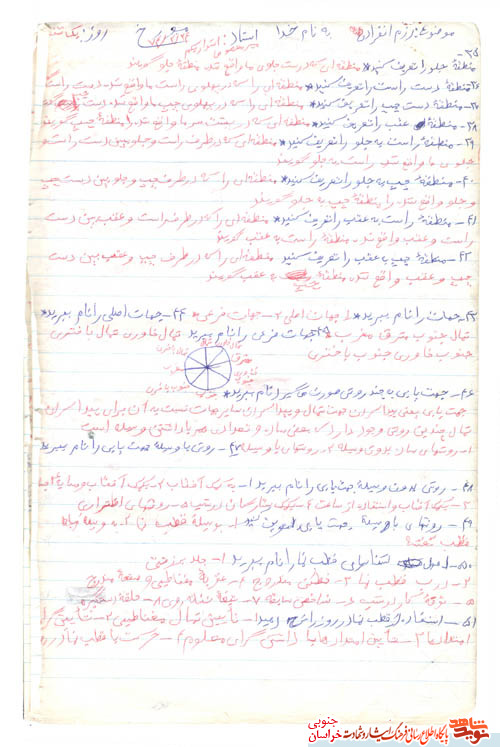 موضوع: رزم انفرادی به نام خدا استاد: روز: یکشنبه
۳۵-
منطقه جلو را تعریف کنید* منطقه ای که در سمت جلوی ما واقع شد منطقه جلو گویند
۳۶- منطقه دست راست را تعریف کنید* منطقه ای را که در پهلوی راست ما واقع شد دست راست
۳۷- منطقه دست چپ را تعریف کنید* منطقه ای را که در پهلوی چپ ما واقع شد دست چپ گویند
۳۸- منطقه عقب را تعریف کنید* منطقه ای که در پشت سر ما واقع شد را منطقه عقب گویند
۳۹- منطقه راست به جلو را تعریف کنید* منطقه ای را که در طرف راست و جلو بین دست راست و
جلوی ما واقع شد راست به جلو گویند
۴۰- منطقه چپ به جلو را تعریف کنید* منطقه ای را که در طرف چپ و جلو بین دست چپ
و جلو واقع شد را منطقه چپ به جلو گویند
۴۱- منطقه راست به عقب را تعریف کنید* منطقه ای را که در طرف راست و عقب بین دست
راست و عقب واقع شد منطقه راست به عقب گویند
۴۲- منطقه چپ به عقب را تعریف کنید منطقه ای را که در طرف چپ و عقب بین دست
چپ و عقب واقع شد منطقه چپ به عقب گویند
۴۳- جهات را نام ببرید* ۱- جهات اصلی ۲- جهات فرعی* ۴۴- جهات اصلی را نام ببرید
شمال جنوب مشرق مغرب* ۴۵- جهات فرعی را نام ببرید شمال خاوری شمال باختری
جنوب خاوری جنوب باختری
۴۶- جهت یابی به چند روش صورت می گیرد نام ببرید*
جهت یابی یعنی پیدا کردن جهت شمال و پیدا کردن سایر جهات نسبت به آن برای پیدا کردن
شمال چندین روش وجود دارد که بعضی ساده و تعدادی هم با داشتن وسیله است
۱- روشهای ساده بدون وسیله ۲- روشهای با وسیله* ۴۷- روش با وسیله جهت یابی را نام ببرید
۴۸- روش بدون وسیله جهت یابی را نام ببرید ۱- به کمک آفتاب ۲- کمک آفتاب و سایه
۳- کمک آفتاب و استفاده از ساعت ۴- کمک ستارگان در شب ۵- روشهای اضطراری
۴۹- روشهای با وسیله جهت یابی ۱- بوسیله قطب نما ۲-
قطب
۵۰- قطب نما را نام ببرید ۱- جلد برزنتی
۲- درب قطب نما ۳- قطب مدرج ۴- عقربه مغناطیسی و صفحه مدرج
۵- ۶- شاخص ۷- ۸- حلقه
۵۱- استفاده از قطب نما در روز ۱- تأیین شمال مغناطیسی ۲- تأیین گرای
امتدادها ۳- تأیین امتدادها با داشتن گرای معلوم ۴- حرکت با قطب نما در روز
پایگاه اطلاع رسانی فرهنگ ایثار و شهادت خراسان جنوبی
نوید شاهد